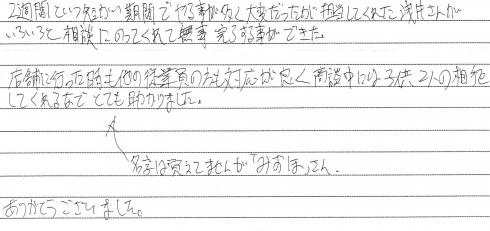 2週間という短かい期間でやる事が多く大変だったが担当してくれた浅井さんが
いろいろと相談にのってくれて無事完了する事ができた。
店舗に行った時も他の従業員の方も対応が良く商談中には子供2人の相手
してくれるなどとても助かりました。
名字は覚えてませんが「みずほ」さん.
ありがとうございました。